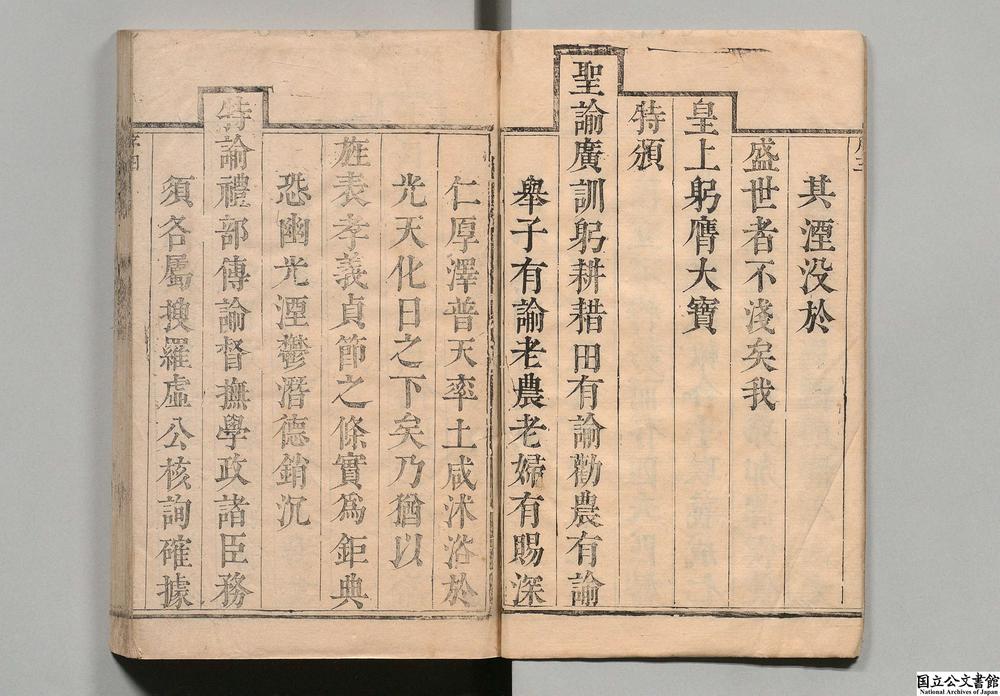 其湮没於
盛世者不淺矣我
皇上躬膺大寶
特頒
聖諭廣訓躬耕耤田有諭勸農有諭
舉子有諭老農老婦有賜深
仁厚澤普天率土咸沐浴於
光天化日之下矣乃猶以
旌表孝義貞節之條實爲鉅典
恐幽光湮鬱潛德銷沉
特諭禮部傳諭督撫學政諸臣務
須各屬搜羅虛公核詢確據
国立公文書館
National Archives of Japan